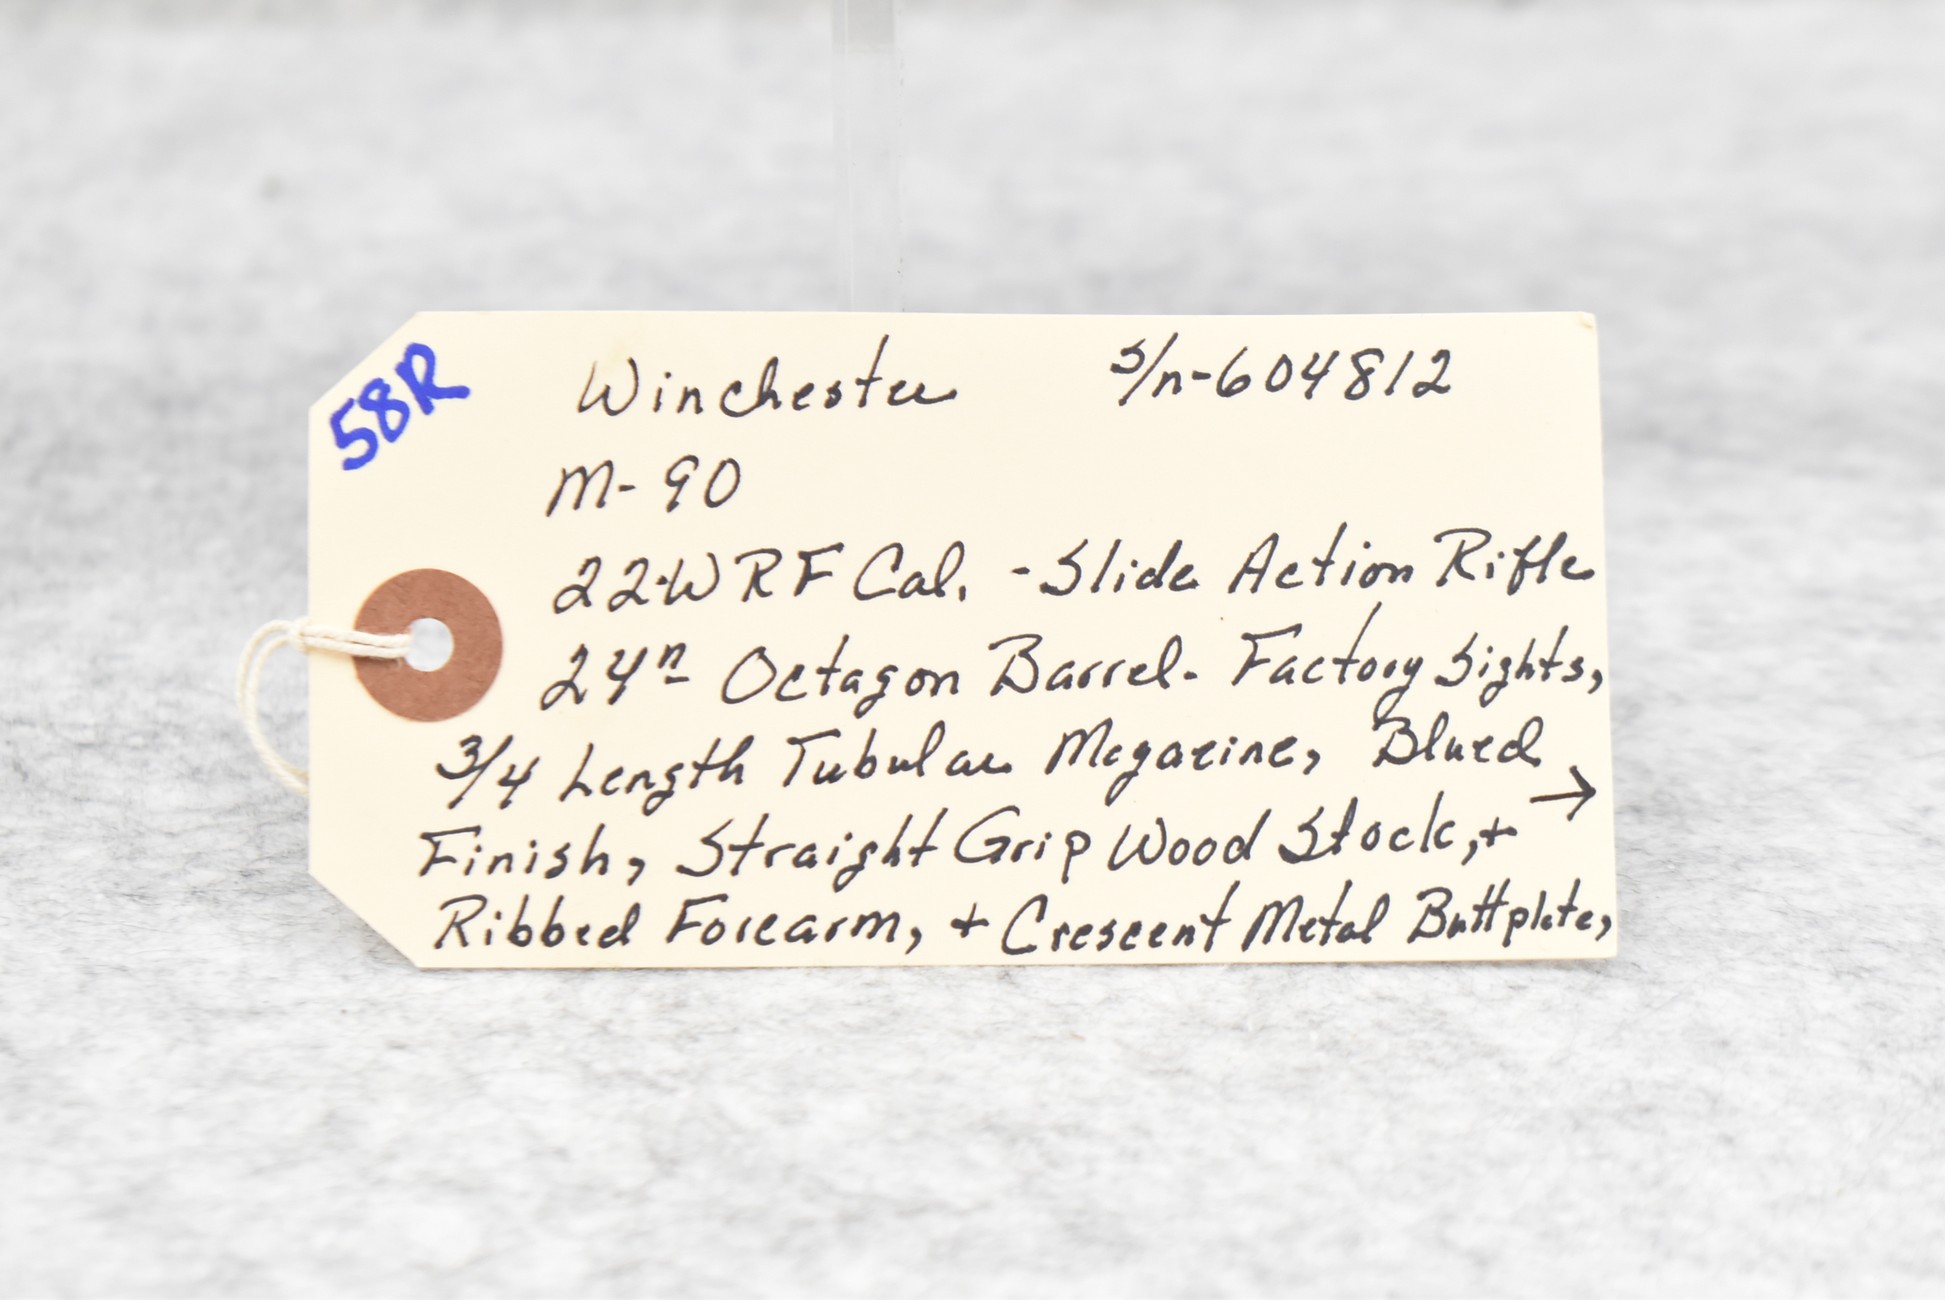 58R
Winchester S/n-604812
M-90
22WRF Cal. - Slide Action Rifle
24" Octagon Barrel - Factory Sights,
3/4 Length Tubular Magazine, Blued
Finish, Straight Grip Wood Stock, + →
Ribbed Forearm, + Crescent Metal Buttplate,